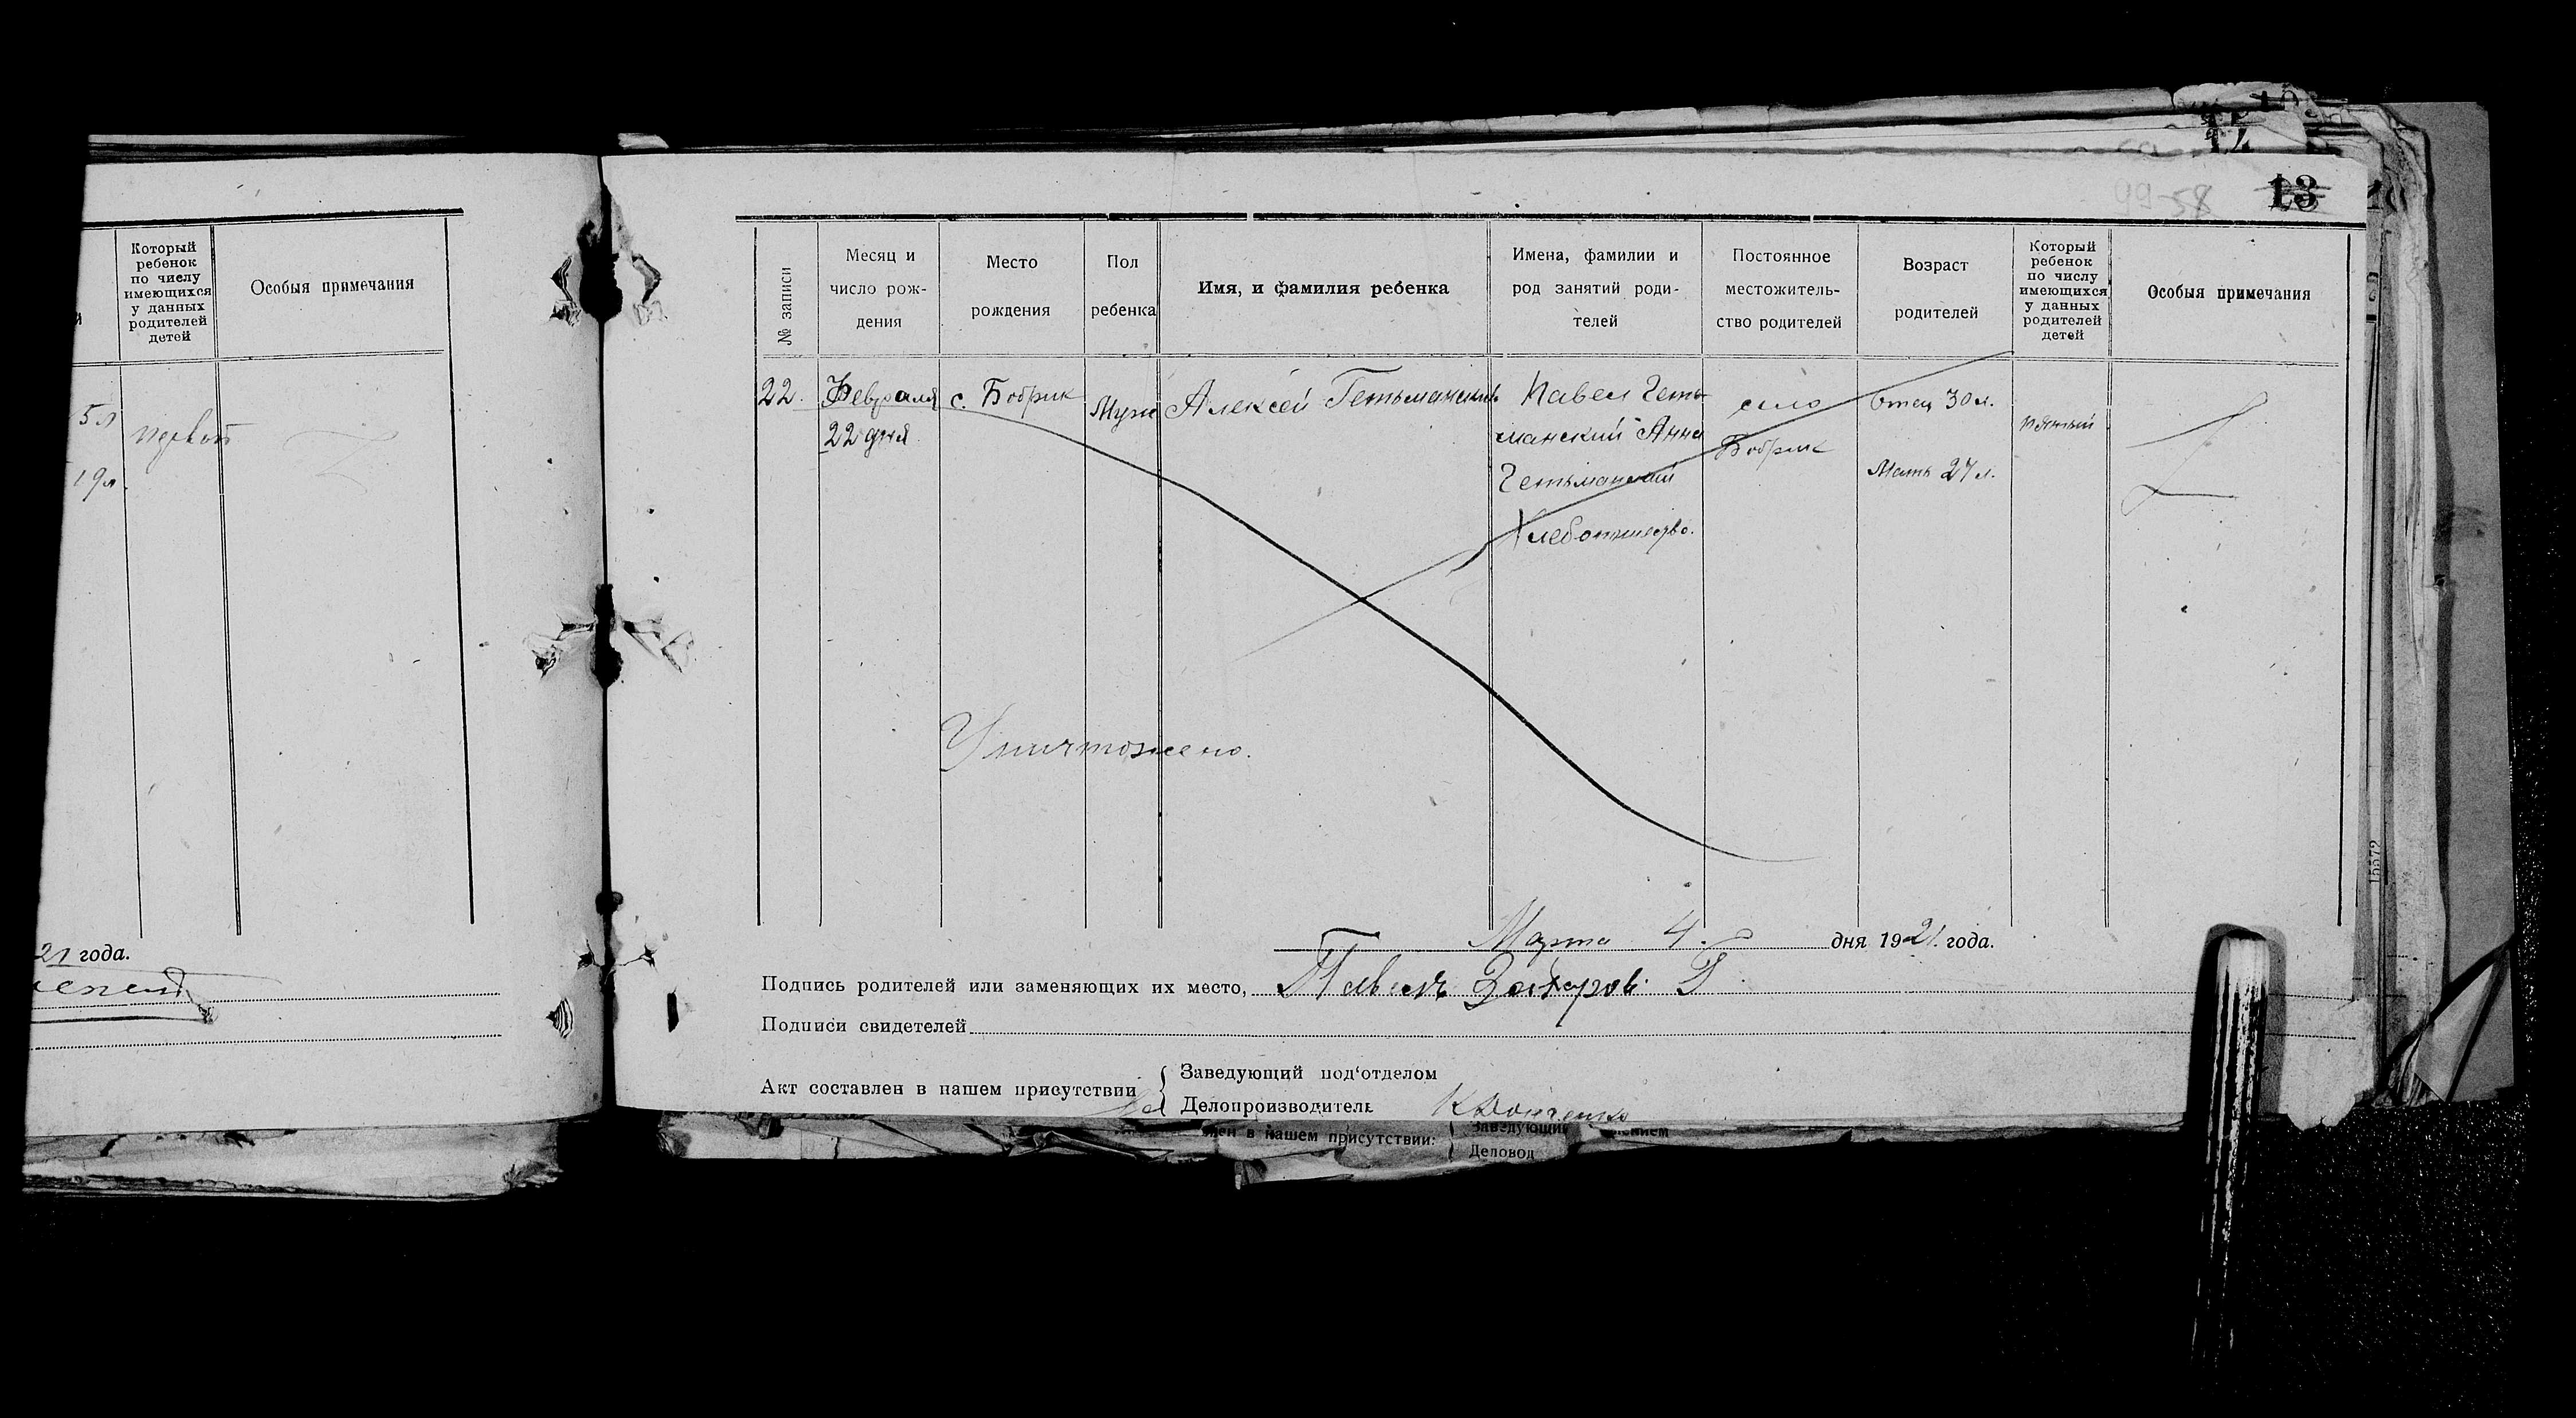 99-58
13
Который
ребенок
по числу
имеющихся
у данных
родителей
детей
Особыя примечания
5 л
19 л
первый
21 года.
№ записи
Месяц и
число рож-
дения
Место
рождения
Пол
ребенка
Имя, и фамилия ребенка
Имена, фамилии и
род занятий роди-
телей
Постоянное
местожитель-
ство родителей
Возраст
родителей
Который
ребенок
по числу
имеющихся
у данных
родителей
детей
Особыя примечания
22.
Февраля
22 дня
с. Бобрик
Муж
Алексей Гетьманский
Павел Геть-
манский Анна
Гетьманский
Хлебопашество.
село
Бобрик
Отец 30 л.
Мать 27 л.
пятый
Уничтожено.
Марта 4. дня 1921 года.
Подпись родителей или заменяющих их место, Павелъ Захаров. Г
Подписи свидетелей
Акт составлен в нашем присутствии
Заведующий под'отделом
Делопроизводитель
в нашем присутствии:
Заведующий
Деловод
15572